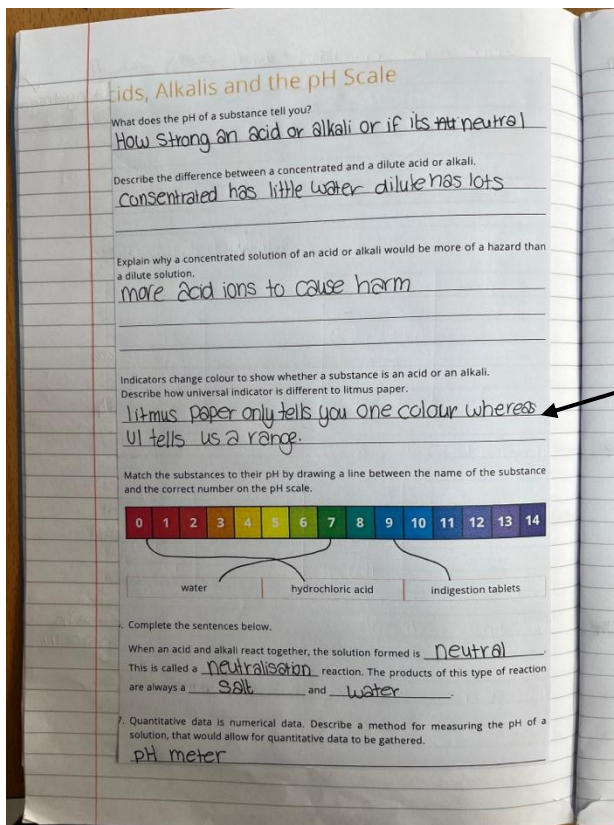 cids, Alkalis and the pH Scale
What does the pH of a substance tell you?
How strong an acid or alkali or if its neutral
Describe the difference between a concentrated and a dilute acid or alkali.
consentrated has little water dilute has lots
Explain why a concentrated solution of an acid or alkali would be more of a hazard than
a dilute solution.
more acid ions to cause harm
Indicators change colour to show whether a substance is an acid or an alkali.
Describe how universal indicator is different to litmus paper.
litmus paper only tells you one colour whereas
UI tells us a range.
Match the substances to their pH by drawing a line between the name of the substance
and the correct number on the pH scale.
0 1 2 3 4 5 6 7 8 9 10 11 12 13 14
water hydrochloric acid indigestion tablets
. Complete the sentences below.
When an acid and alkali react together, the solution formed is neutral.
This is called a neutralisation reaction. The products of this type of reaction
are always a salt and water.
7. Quantitative data is numerical data. Describe a method for measuring the pH of a
solution, that would allow for quantitative data to be gathered.
pH meter